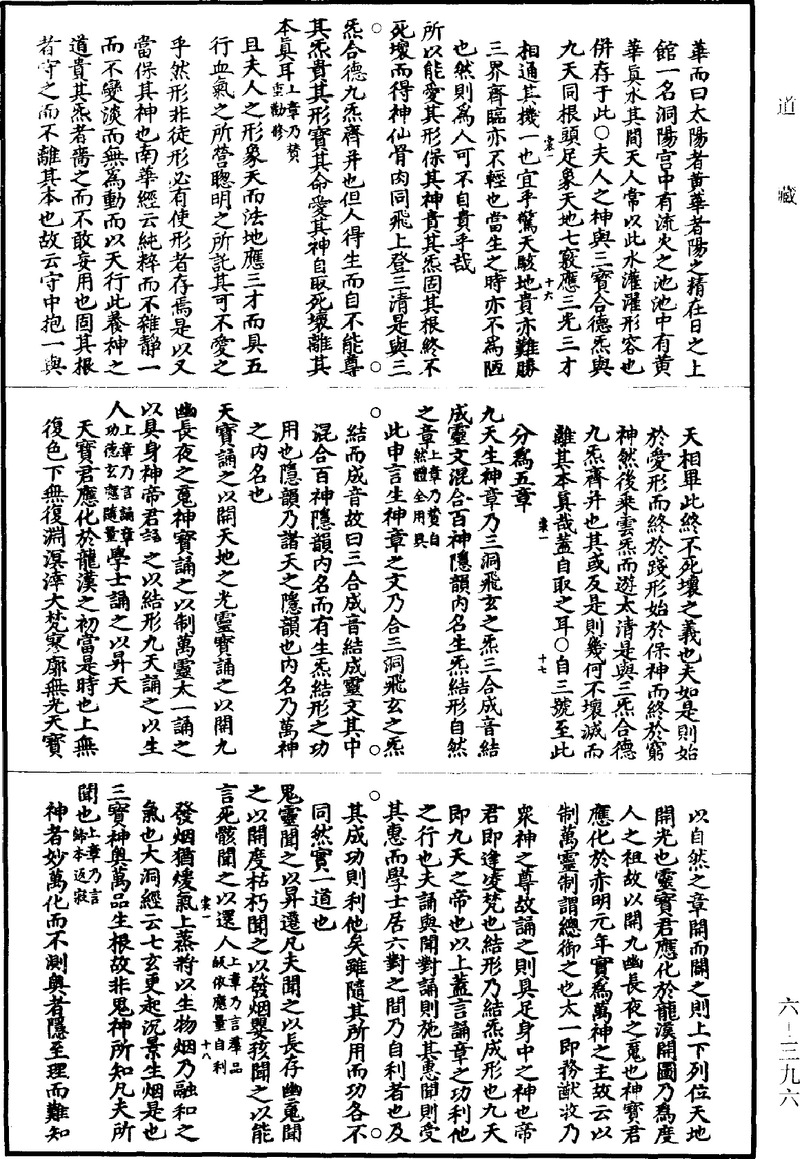 道藏
華而曰太陽者黃華者陽之精在日之上
館一名洞陽宮中有流火之池池中有黃
華真水其間天人常以此水灌濯形容也
併存于此○夫人之神與三寶合德炁與
九天同根頭足象天地七竅應三光三才
裳一 十六
相通其機一也宜乎驚天駭地貴亦難勝
三界齊臨亦不輕也當生之時亦不為陋
也然則為人可不自貴乎哉
所以能愛其形保其神貴其炁固其根終不
死壞而得神仙骨肉同飛上登三清是與三
炁合德九炁齊并也但人得生而自不能尊
其炁貴其形寶其命愛其神自取死壞離其
本真耳上章乃贊重勸修
且夫人之形象天而法地應三才而具五
行血氣之所營聰明之所託其可不愛之
乎然形非徒形必有使形者存焉是以又
當保其神也南華經云純粹而不雜靜一
而不變淡而無為動而以天行此養神之
道貴其炁者嗇之而不敢妄用也固其根
者守之而不離其本也故云守中抱一與
天相畢此終不死壞之義也夫如是則始
於愛形而終於踐形始於保神而終於窮
神然後乘雲炁而遊太清是與三炁合德
九炁齊并也其或反是則幾何不壞滅而
離其本真哉蓋自取之耳○自三號至此
裳一 十七
分為五章
九天生神章乃三洞飛玄之炁三合成音結
成靈文混合百神隱韻內名生炁結形自然
之章上章乃贊自然體全用具
此申言生神章之文乃合三洞飛玄之炁
結而成音故曰三合成音結成靈文其中
混合百神隱韻內名而有生炁結形之功
用也隱韻乃諸天之隱韻也內名乃萬神
之內名也
天寶誦之以開天地之光靈寶誦之以開九
幽長夜之䰟神寶誦之以制萬靈太一誦之
以具身神帝君誦之以結形九天誦之以生
人上章乃言誦章功德玄應隨量學士誦之以昇天
天寶君應化於龍漢之初當是時也上無
復色下無復淵溟涬大梵寥廓無光天寶
以自然之章開而闢之則上下列位天地
開光也靈寶君應化於龍漢開圖乃為度
人之祖故以開九幽長夜之䰟也神寶君
應化於赤明元年實為萬神之主故云以
制萬靈制謂總御之也太一即務猷收乃
眾神之尊故誦之則具足身中之神也帝
君即逹凌梵也結形乃結炁成形也九天
即九天之帝也以上蓋言誦章之功利他
之行也夫誦與聞對誦則施其惠聞則受
其惠而學士居六對之間乃自利者也及
其成功則利他矣雖隨其所用而功各不
同然實一道也
鬼靈聞之以昇遷凡夫聞之以長存幽䰟聞
之以開度枯朽聞之以發烟嬰孩聞之以能
言死骸聞之以還人上章乃言羣品皈依應量自利
裳一 十八
發烟猶煖氣上蒸將以生物烟乃融和之
氣也大洞經云七玄更起沉景生烟是也
三寶神奧萬品生根故非鬼神所知凡夫所
聞也上章乃言歸本返寂
神者妙萬化而不測奧者隱至理而難知
六–三九六